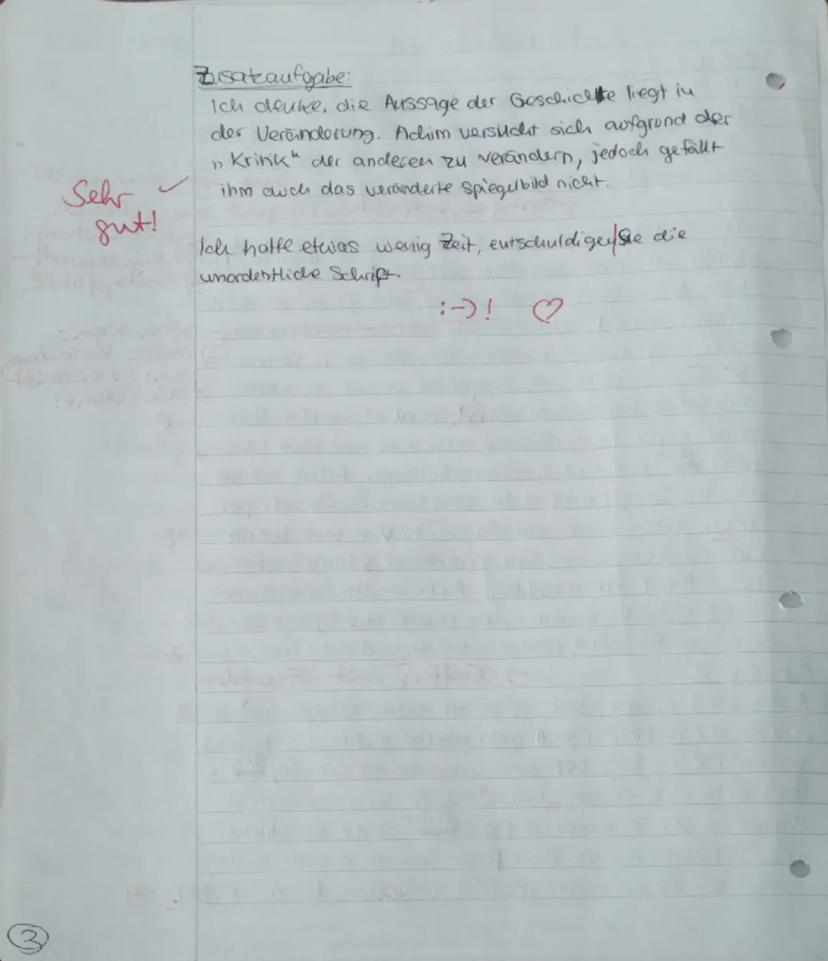 Zusatzaufgabe:
Ich denke, die Aussage der Geschichte liegt in
der Veränderung. Achim versucht sich aufgrund der
„Kritik“ der anderen zu verändern, jedoch gefällt
ihm auch das veränderte Spiegelbild nicht.
Sehr ✓
gut!
Ich hatte etwas wenig Zeit, entschuldigen Sie die
unordentliche Schrift.
:-)! ♡
3